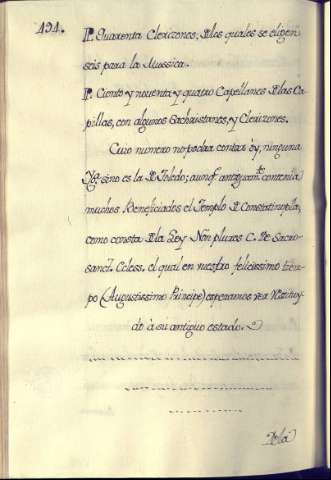 494.
P. Quarenta Clerizones, De los quales se eligen
seis para la Mussica.
P. Ciento y noventa y quatro Capellanes De las Ca-
pillas, con algunos Sachristanes, y Clerizones.
Cuio numero no podra contar oy, ninguna
Yg.ª sino es la De Toledo; aunq.e antiguam.te contenia
muchos Beneficiados el Templo De Constantinopla,
como consta De la Ley Non plures C. De Sacro-
sanct. Eccless. el qual en nuestro felicissimo tiem-
po (Augustissimo Principe) esperamos ver restituy-
do à su antiguo estado.
De la